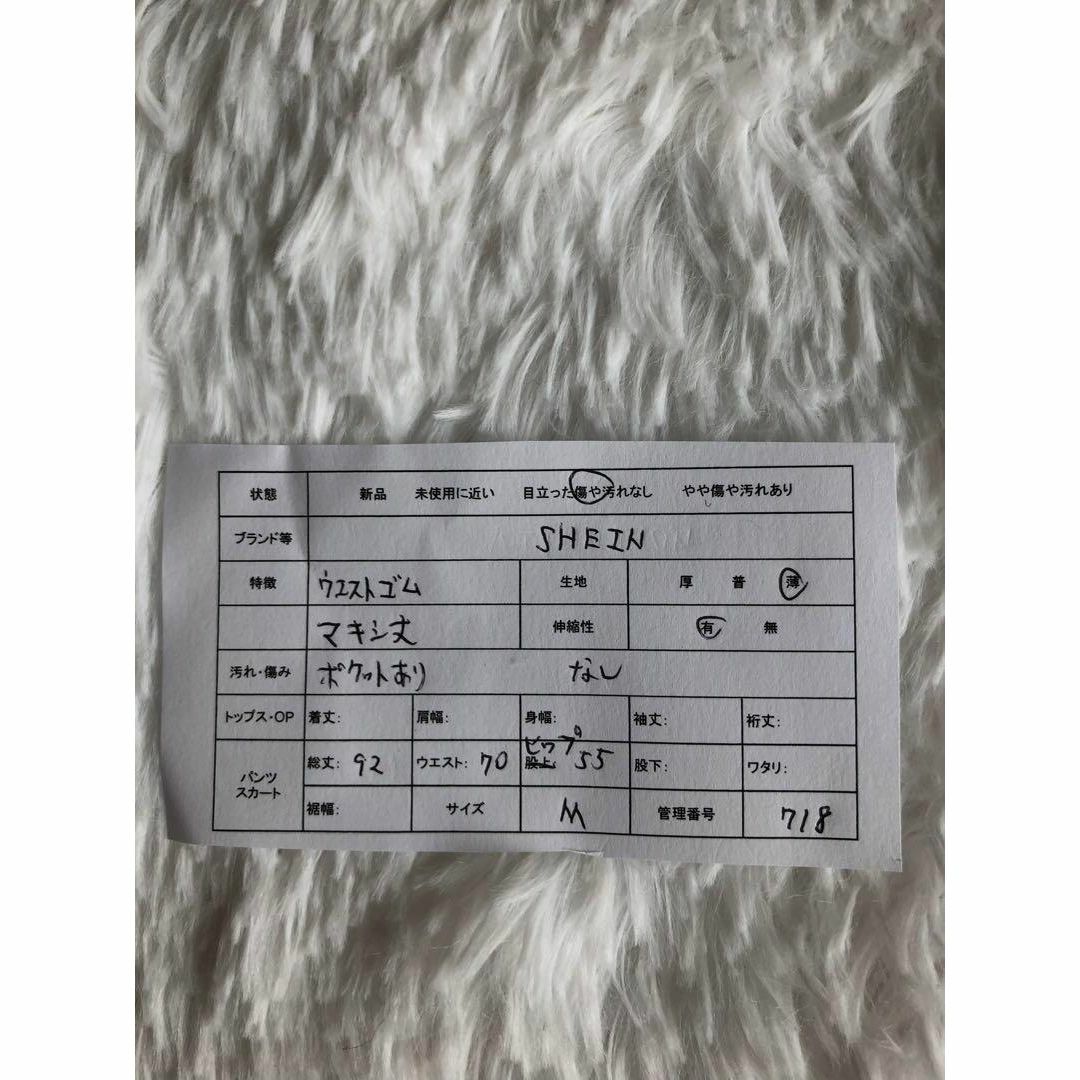 状態 新品 未使用に近い 目立った傷や汚れなし やや傷や汚れあり
ブランド等 SHEIN
特徴 ウエストゴム 生地 厚 普 薄
マキシ丈 伸縮性 有 無
汚れ・傷み ポケットあり なし
トップス・OP 着丈: 肩幅: 身幅: 袖丈: 裄丈:
パンツ スカート 総丈: 92 ウエスト: 70 ヒップ 股上: 55 股下: ワタリ:
裾幅: サイズ M 管理番号 718